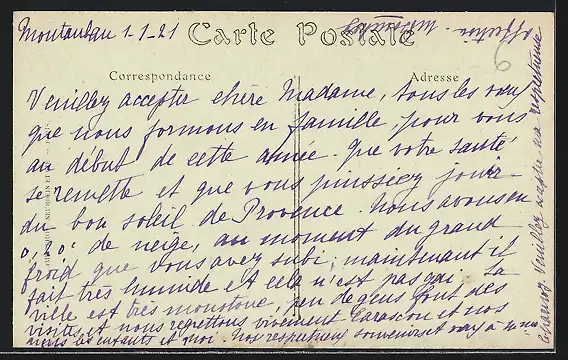 Montauban 1-1-21
Carte Postale
Correspondance
Adresse
6
Veuillez accepter chère Madame, tous les vœux
que nous formons en famille pour vous
au début de cette année. que votre santé
se remette et que vous puissiez jouir
du bon soleil de Provence. Nous avons eu
0,20 de neige, au moment du grand
froid que vous avez subi; maintenant il
fait très humide et cela n'est pas gai. La
ville est très monotone, peu de gens font des
visites et nous regrettons vivement Tarascon et nos
les enfants et moi. Nos respectueux souvenirs et
Veuillez respectueuse